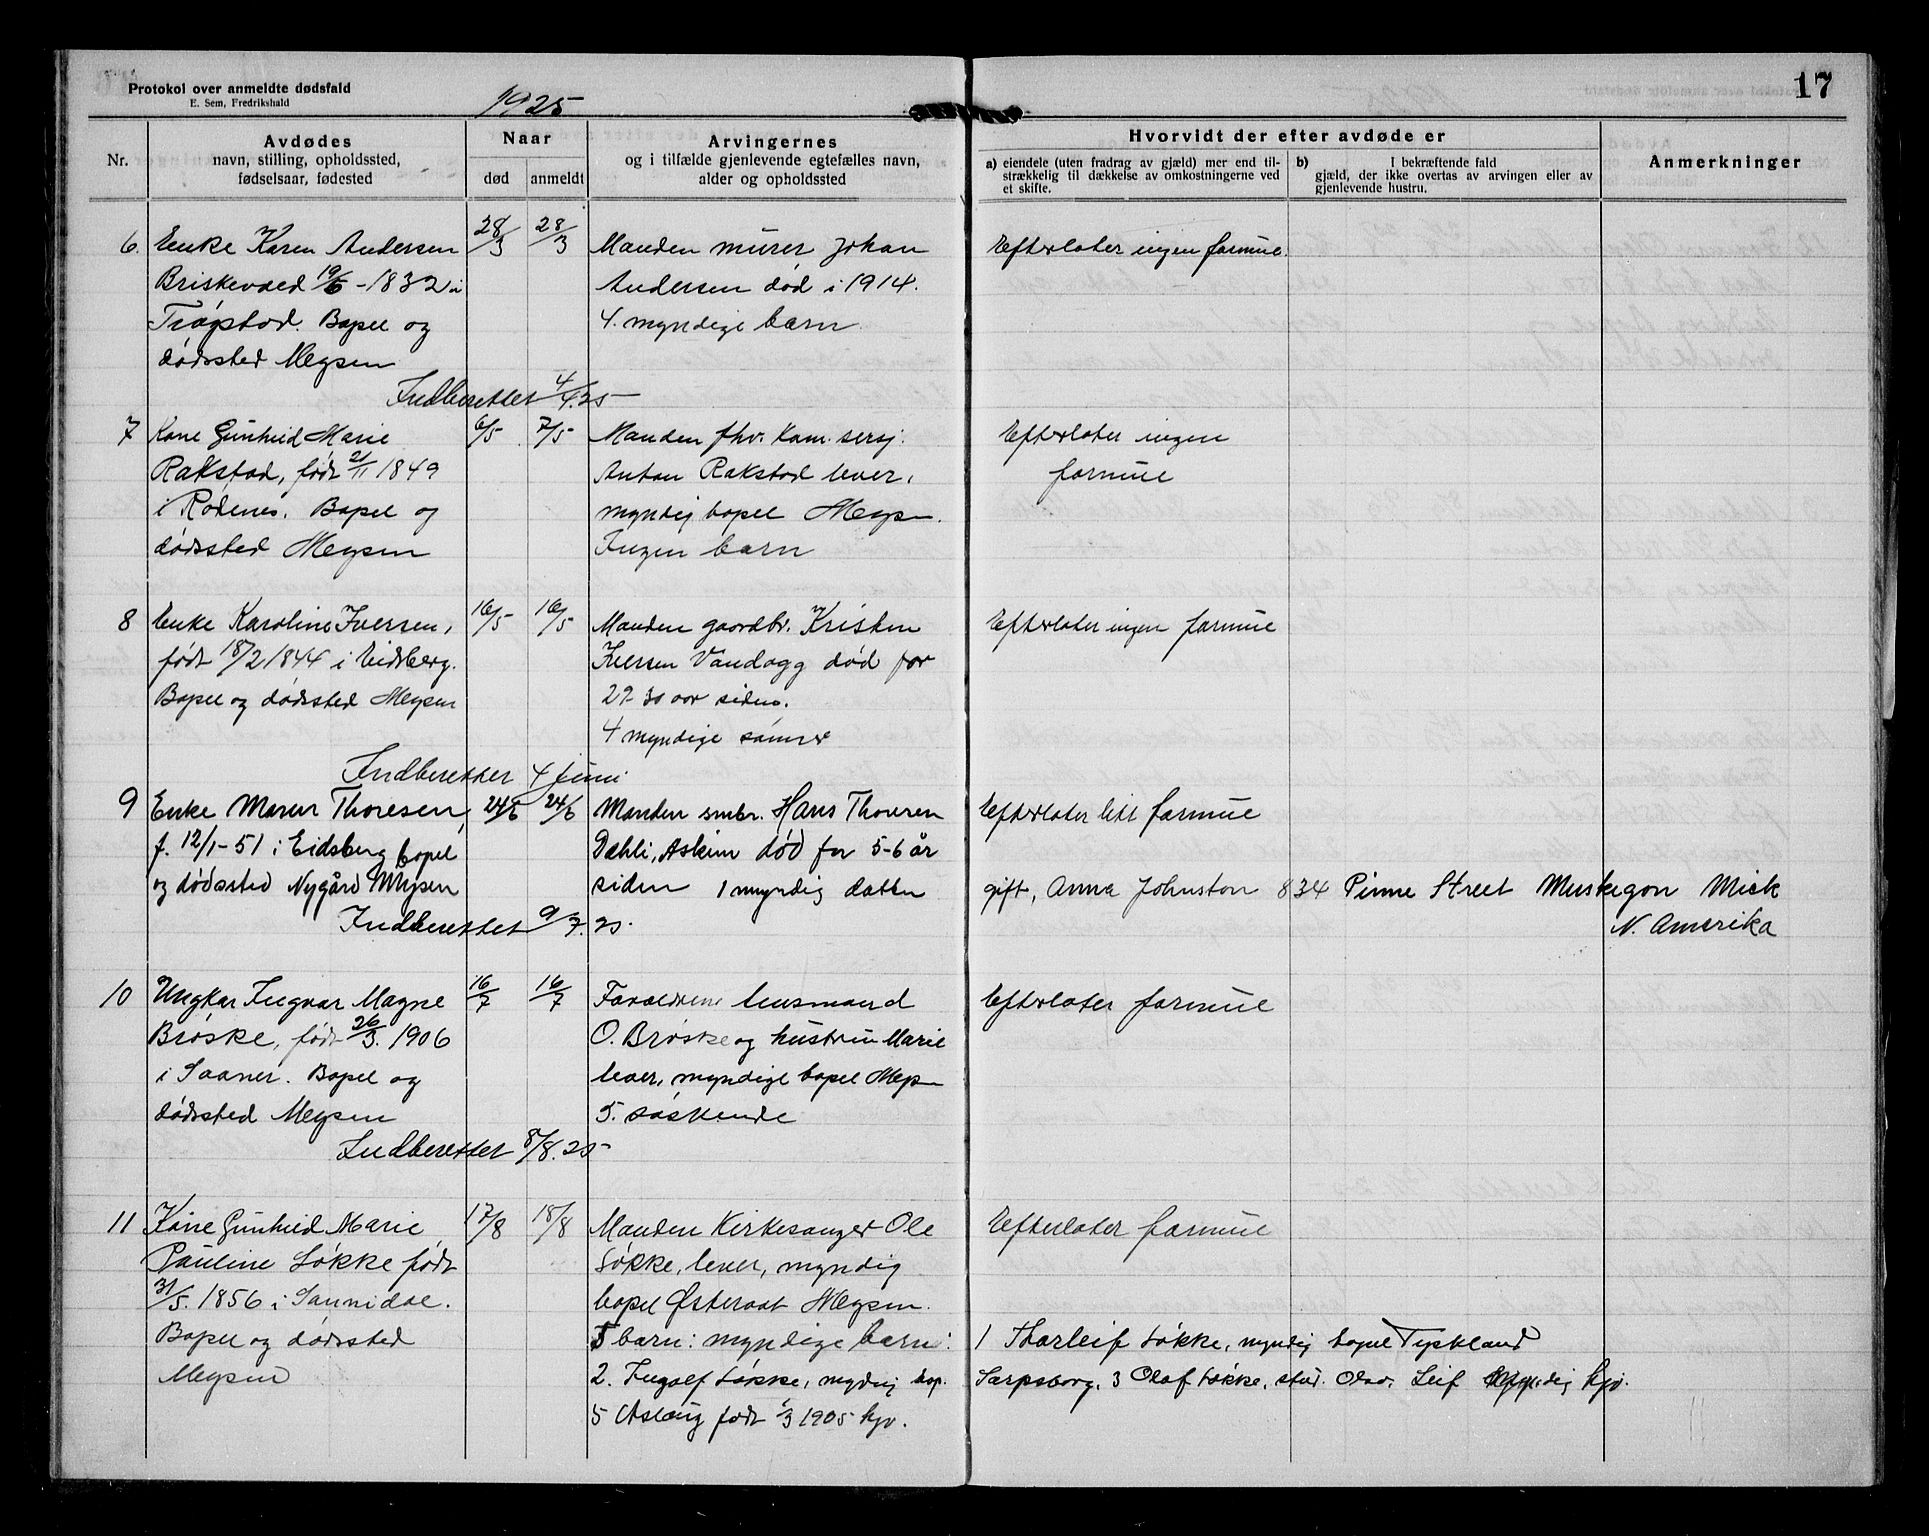 Protokol over anmeldte dødsfald
E. Sem, Fredrikshald
1925
17
Nr.
Avdødes
navn, stilling, opholdssted,
fødselsaar, fødested
Naar
død
anmeldt
Arvingernes
og i tilfælde gjenlevende egtefælles navn,
alder og opholdssted
Hvorvidt der efter avdøde er
a) eiendele (uten fradrag av gjæld) mer end til-
strækkelig til dækkelse av omkostningerne ved
et skifte.
b) I bekræftende fald
gjæld, der ikke overtas av arvingen eller av
gjenlevende hustru.
Anmerkninger
6. Enke Karen Andersen
Briskevaed 19/6 - 1832 i
Trøgstad. Bopel og
dødssted Mysen
28/3
28/3
Manden murer Johan
Andersen død i 1914.
4. myndige barn
Efterlater ingen formue.
Indberettet 4/4.25
7 Kone Gunhild Marie
Rakstad, født 2/11 1849
i Rødenes. Bopel og
dødssted Mysen
6/5
7/5
Manden fhv. Kom. sersj.
Anton Rakstad lever,
myndig bopel Mysen.
Ingen barn
Efterlater ingen
formue
8 Enke Karoline Iversen,
født 18/2 1844 i Eidsberg.
Bopel og dødssted Mysen
16/5
16/5
Manden gaardbr. Kristen
Iversen Vandugg død for
29-30 aar siden.
4 myndige sønner
Efterlater ingen formue
Indberettet 4 juni
9 Enke Maren Thoresen,
f. 12/1-51 i Eidsberg bopel
og dødssted Nygård Mysen
24/6
24/6
Manden smbr. Hans Thoresen
Dæhli, Askim død for 5-6 år
siden 1 myndig datter
Efterlater litt formue
gift, Anna Johnston 834 Pinne Street Muskegon Mick
N. Amerika
Indberettet 9/7.25.
10 Ungkar Ingvar Magne
Brøske, født 26/3. 1906
i Saaner. Bopel og
dødssted Mysen
16/7
16/7
Forældrene husmand
O. Brøske og hustru Marie
lever, myndige bopel Mysen
5. søskende
Efterlater formue
Indberettet 8/8.25
11 Kone Gunhild Marie
Pauline Løkke født
31/5. 1856 i Sannidal.
Bopel og dødssted
Mysen
17/8
18/8
Manden Kirkesanger Ole
Løkke, lever, myndig
bopel Østeraat Mysen.
5 barn: myndige barn:
2. Ingolf Løkke, myndig bop.
5 Aslaug født /3 1905 hjv.
Efterlater formue
1 Thorleif Løkke, myndig bopel Tyskland
Sarpsborg, 3 Olaf Løkke, stud. Oslo, Leif myndig hjv.